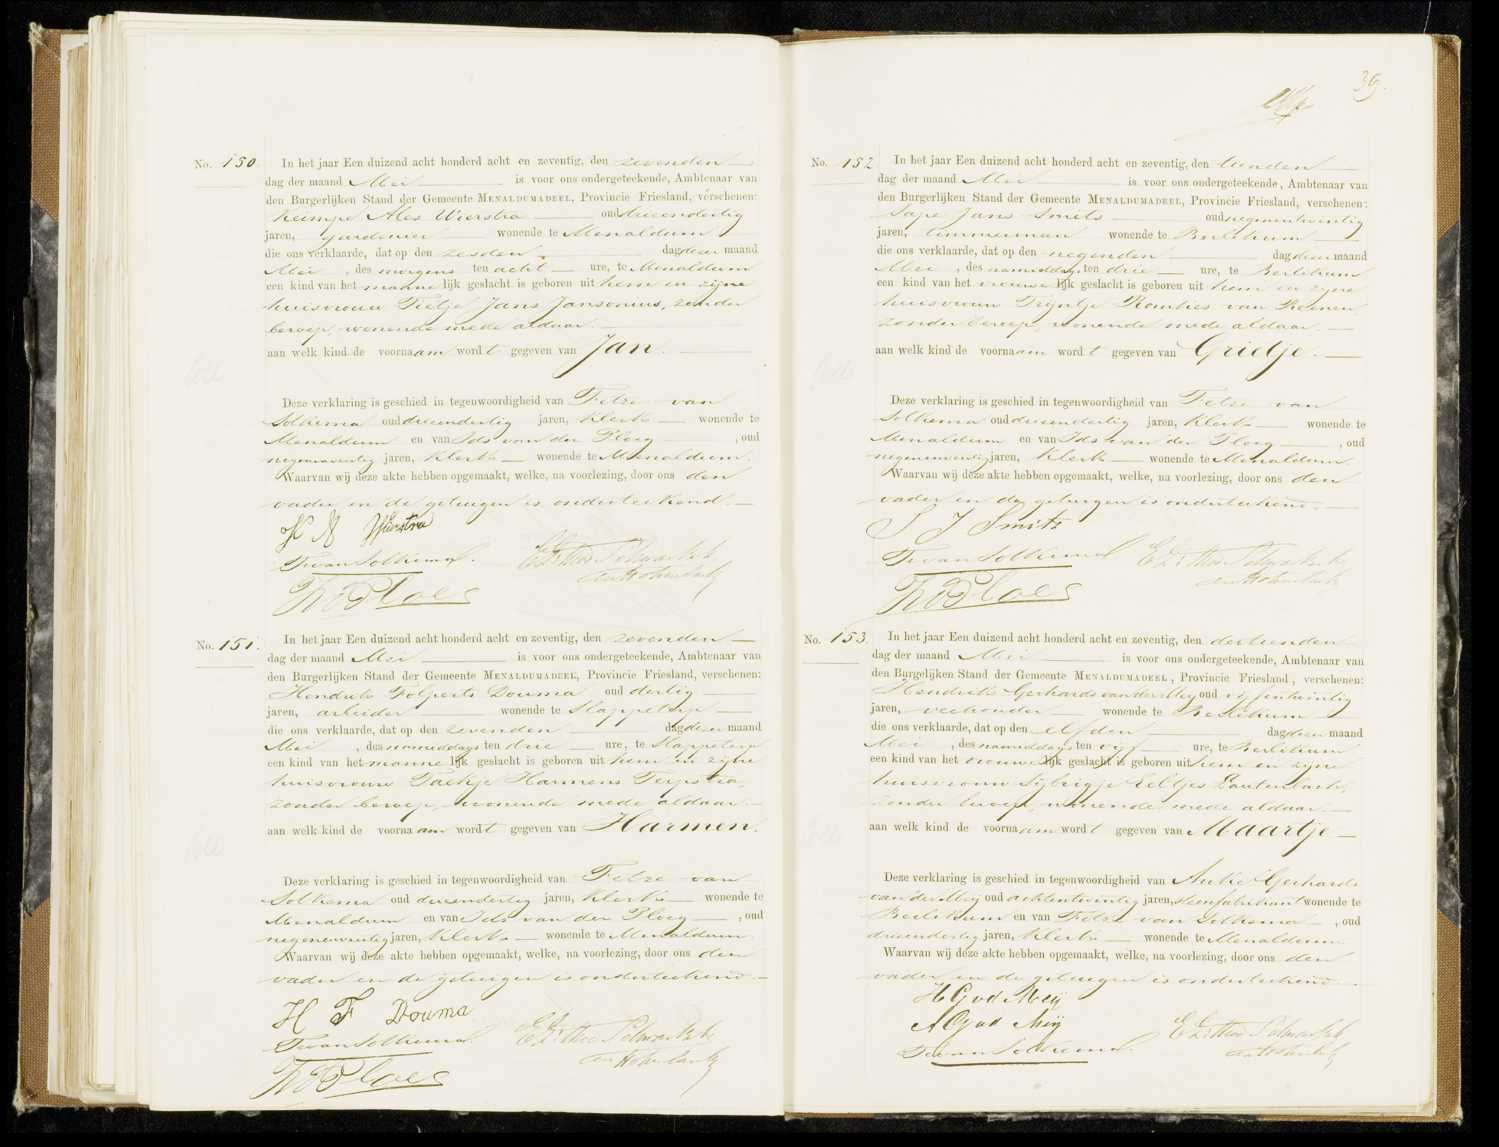 39.
No. 150.
In het jaar Een duizend acht honderd acht en zeventig, den zevenden
dag der maand Mei is voor ons ondergeteekende, Ambtenaar van
den Burgerlijken Stand der Gemeente MENALDUMADEEL, Provincie Friesland, verschenen:
Heimpe Ales Wierstra oud drieendertig
jaren, gardenier wonende te Menaldum
die ons verklaarde, dat op den zesden dag dezer maand
Mei, des morgens ten acht ure, te Menaldum
een kind van het mannelijk geslacht is geboren uit hem en zijne
huisvrouw Tietje Jans Jansonius, zonder
beroep, wonende mede aldaar.
aan welk kind de voornaam wordt gegeven van Jan.
Deze verklaring is geschied in tegenwoordigheid van Fetze van
Solkema oud drieendertig jaren, klerk wonende te
Menaldum en van Ids van der Ploeg, oud
negenentwintig jaren, klerk wonende te Menaldum.
Waarvan wij deze akte hebben opgemaakt, welke, na voorlezing, door ons den
vader en de getuigen is onderteekend.
H A Wierstra
F van Solkema.
No. 151.
In het jaar Een duizend acht honderd acht en zeventig, den zevenden
dag der maand Mei is voor ons ondergeteekende, Ambtenaar van
den Burgerlijken Stand der Gemeente MENALDUMADEEL, Provincie Friesland, verschenen:
Hendrik Folperts Douma oud dertig
jaren, arbeider wonende te Slappeterp
die ons verklaarde, dat op den zevenden dag dezer maand
Mei, des namiddags ten drie ure, te Slappeterp
een kind van het mannelijk geslacht is geboren uit hem en zijne
huisvrouw Taekje Harmens Terpstra,
zonder beroep, wonende mede aldaar.
aan welk kind de voornaam wordt gegeven van Harmen.
Deze verklaring is geschied in tegenwoordigheid van Fetze van
Solkema oud drieendertig jaren, klerk wonende te
Menaldum en van Ids van der Ploeg, oud
negenentwintig jaren, klerk wonende te Menaldum.
Waarvan wij deze akte hebben opgemaakt, welke, na voorlezing, door ons den
vader en de getuigen is onderteekend
H F Douma
F van Solkema
No. 152
In het jaar Een duizend acht honderd acht en zeventig, den tienden
dag der maand Mei is voor ons ondergeteekende, Ambtenaar van
den Burgerlijken Stand der Gemeente MENALDUMADEEL, Provincie Friesland, verschenen:
Sape Jans Smits oud negenentwintig
jaren, timmerman wonende te Berlikum
die ons verklaarde, dat op den negenden dag dezer maand
Mei, des namiddags ten drie ure, te Berlikum
een kind van het vrouwelijk geslacht is geboren uit hem en zijne
huisvrouw Trijntje Romkes van Roenen
zonder beroep, wonende mede aldaar.
aan welk kind de voornaam wordt gegeven van Grietje.
Deze verklaring is geschied in tegenwoordigheid van Fetze van
Solkema oud drieendertig jaren, klerk wonende te
Menaldum en van Ids van der Ploeg, oud
negenentwintig jaren, klerk wonende te Menaldum.
Waarvan wij deze akte hebben opgemaakt, welke, na voorlezing, door ons den
vader en de getuigen is onderteekend.
S J Smits
F van Solkema
No. 153
In het jaar Een duizend acht honderd acht en zeventig, den dertienden
dag der maand Mei is voor ons ondergeteekende, Ambtenaar van
den Burgerlijken Stand der Gemeente MENALDUMADEEL, Provincie Friesland, verschenen:
Hendrik Gerhards van der Meij oud vijfentwintig
jaren, veehouder wonende te Berlikum
die ons verklaarde, dat op den elfden dag dezer maand
Mei, des namiddags ten vijf ure, te Berlikum
een kind van het vrouwelijk geslacht is geboren uit hem en zijne
huisvrouw Sijbrigje Eeltjes Lautenbach,
zonder beroep, wonende mede aldaar.
aan welk kind de voornaam wordt gegeven van Maartje
Deze verklaring is geschied in tegenwoordigheid van Auke Gerhards
van der Meij oud achtentwintig jaren, steenfabrikant wonende te
Berlikum en van Fetze van Solkema, oud
drieendertig jaren, klerk wonende te Menaldum.
Waarvan wij deze akte hebben opgemaakt, welke, na voorlezing, door ons den
vader en de getuigen is onderteekend.
H G vd Meij
A G vd Meij
F van Solkema.